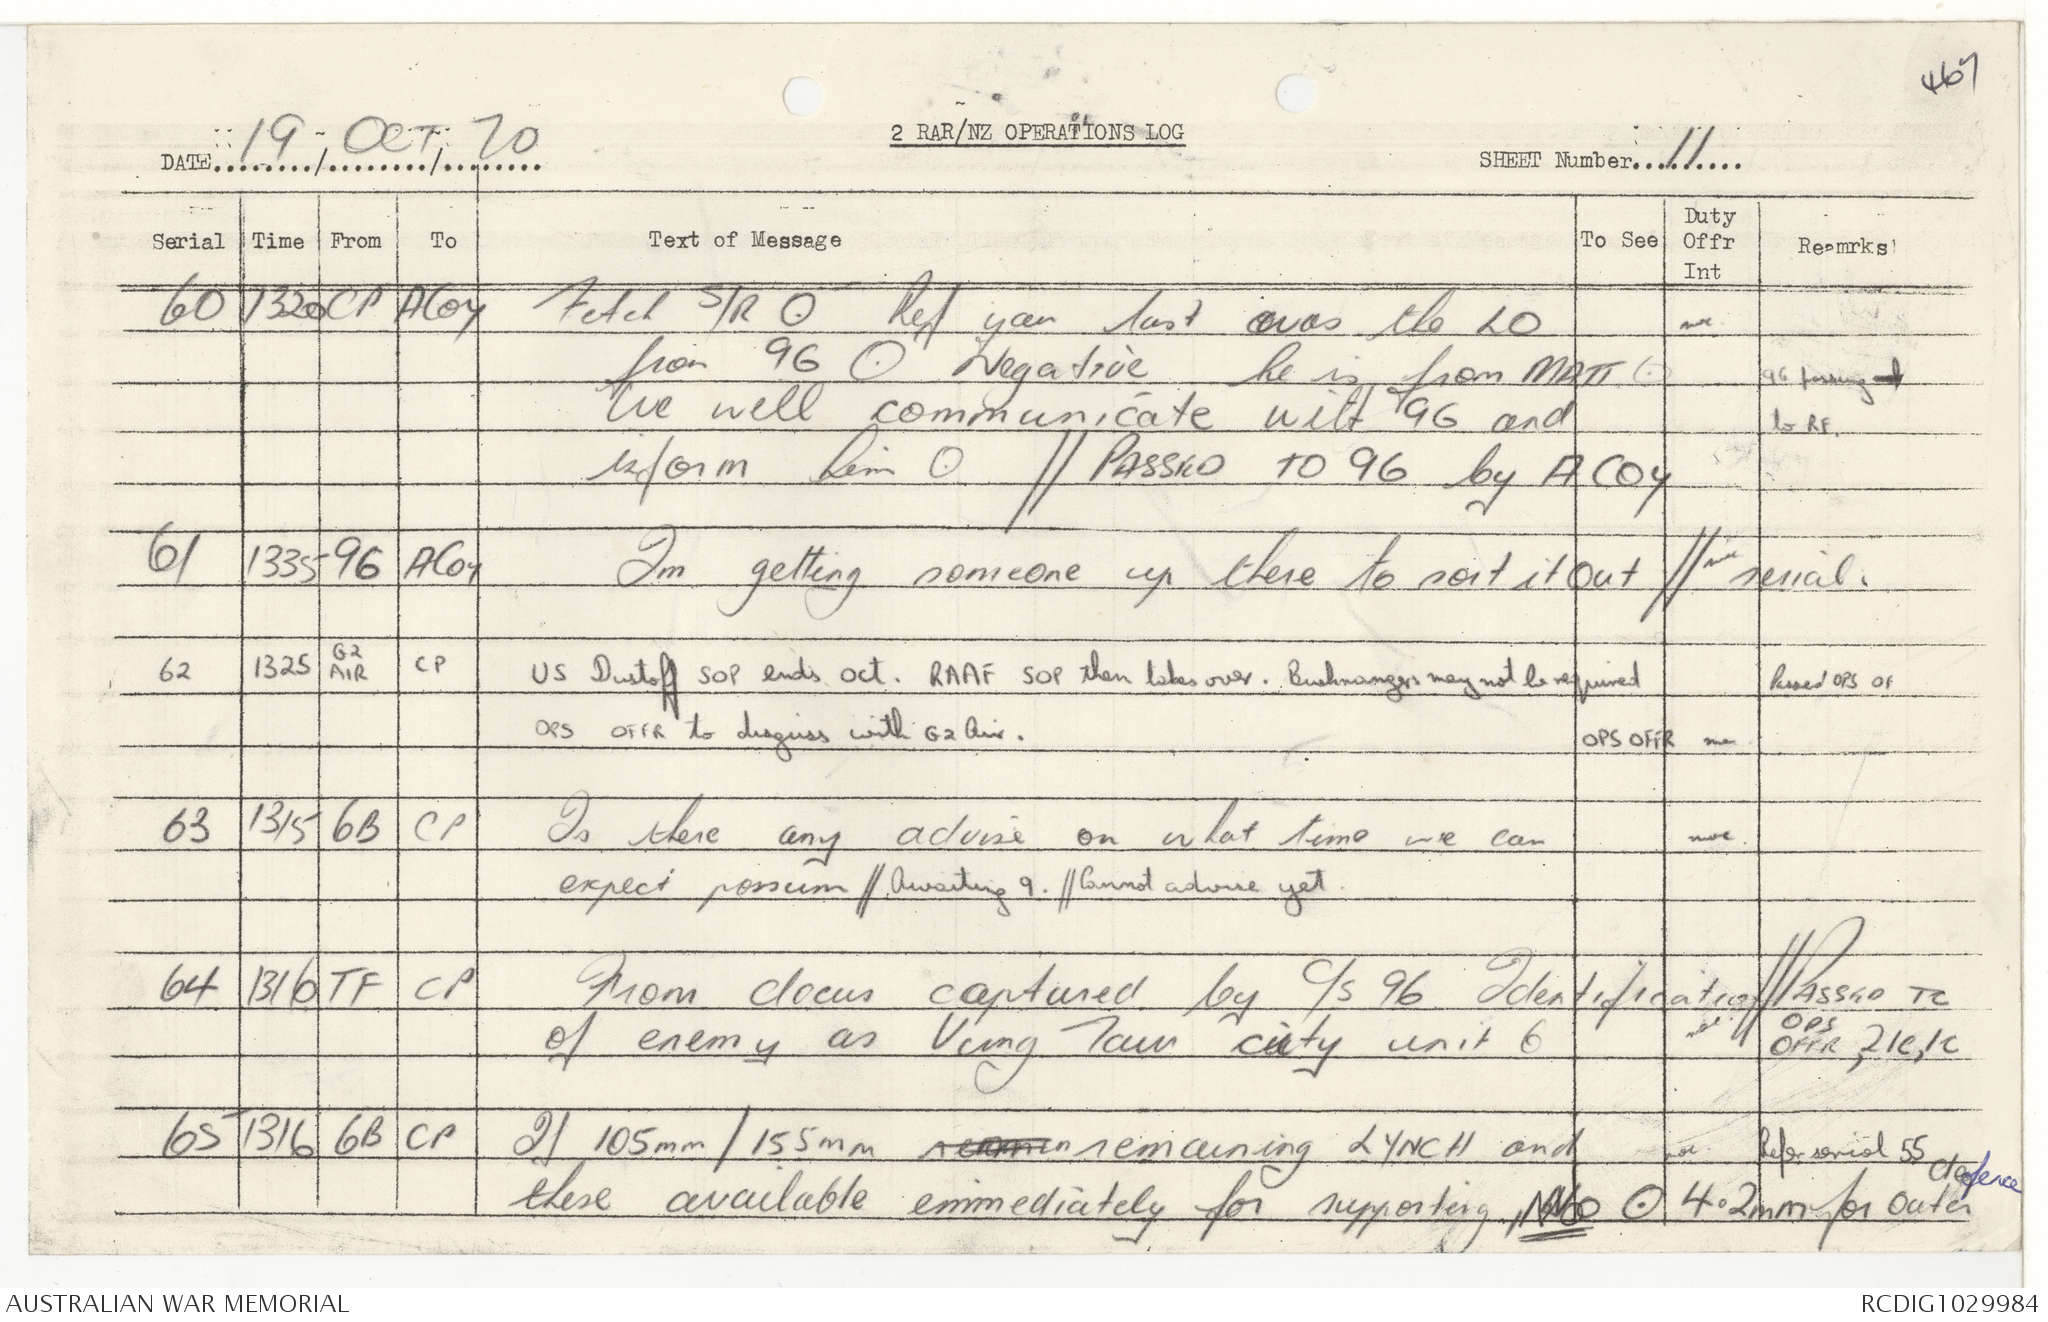 467
2 RAR/NZ OPERATIONS LOG
DATE 19 / OCT / 70
SHEET Number 11
Serial Time From To Text of Message To See Duty Offr Int Reamrks
60 1320 CP ACoy Fetch S/R O Ref your last was the LO
from 96 O Negative he is from MATT O 96 passing
We will communicate with 96 and to RF.
inform him O // PASSED TO 96 by A COy
61 1335 96 ACoy Im getting someone up there to sort it Out // serial.
62 1325 G2 AIR CP US Dustoff SOP ends Oct. RAAF SOP then takes over. Bushrangers may not be required Passed OPS OF
OPS OFFR to disguss with G2 Air. OPS OFFR
63 1315 6B CP Is there any advise on what time we can
expect possum // Awaiting 9. // Cannot advise yet.
64 1316 TF CP From docus captured by C/S 96 Identification // PASSED TO
of enemy as Vung Tau city unit 6 OPS OFFR, 2IC, IC
65 1316 6B CP If 105mm / 155mm remaining LYNCH and Refer serial 55
these available emmediately for supporting, No O 4.2mm for outer defence
AUSTRALIAN WAR MEMORIAL
RCDIG1029984